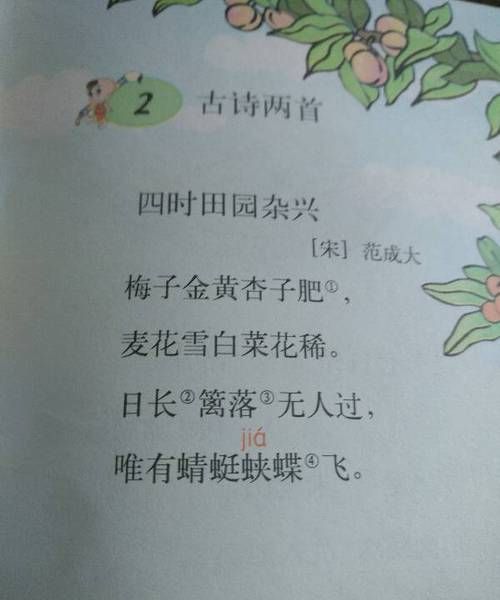 2 古诗两首
四时田园杂兴
[宋] 范成大
梅子金黄杏子肥①,
麦花雪白菜花稀。
日长②篱落③无人过,
jiá
唯有蜻蜓蛱蝶④飞。